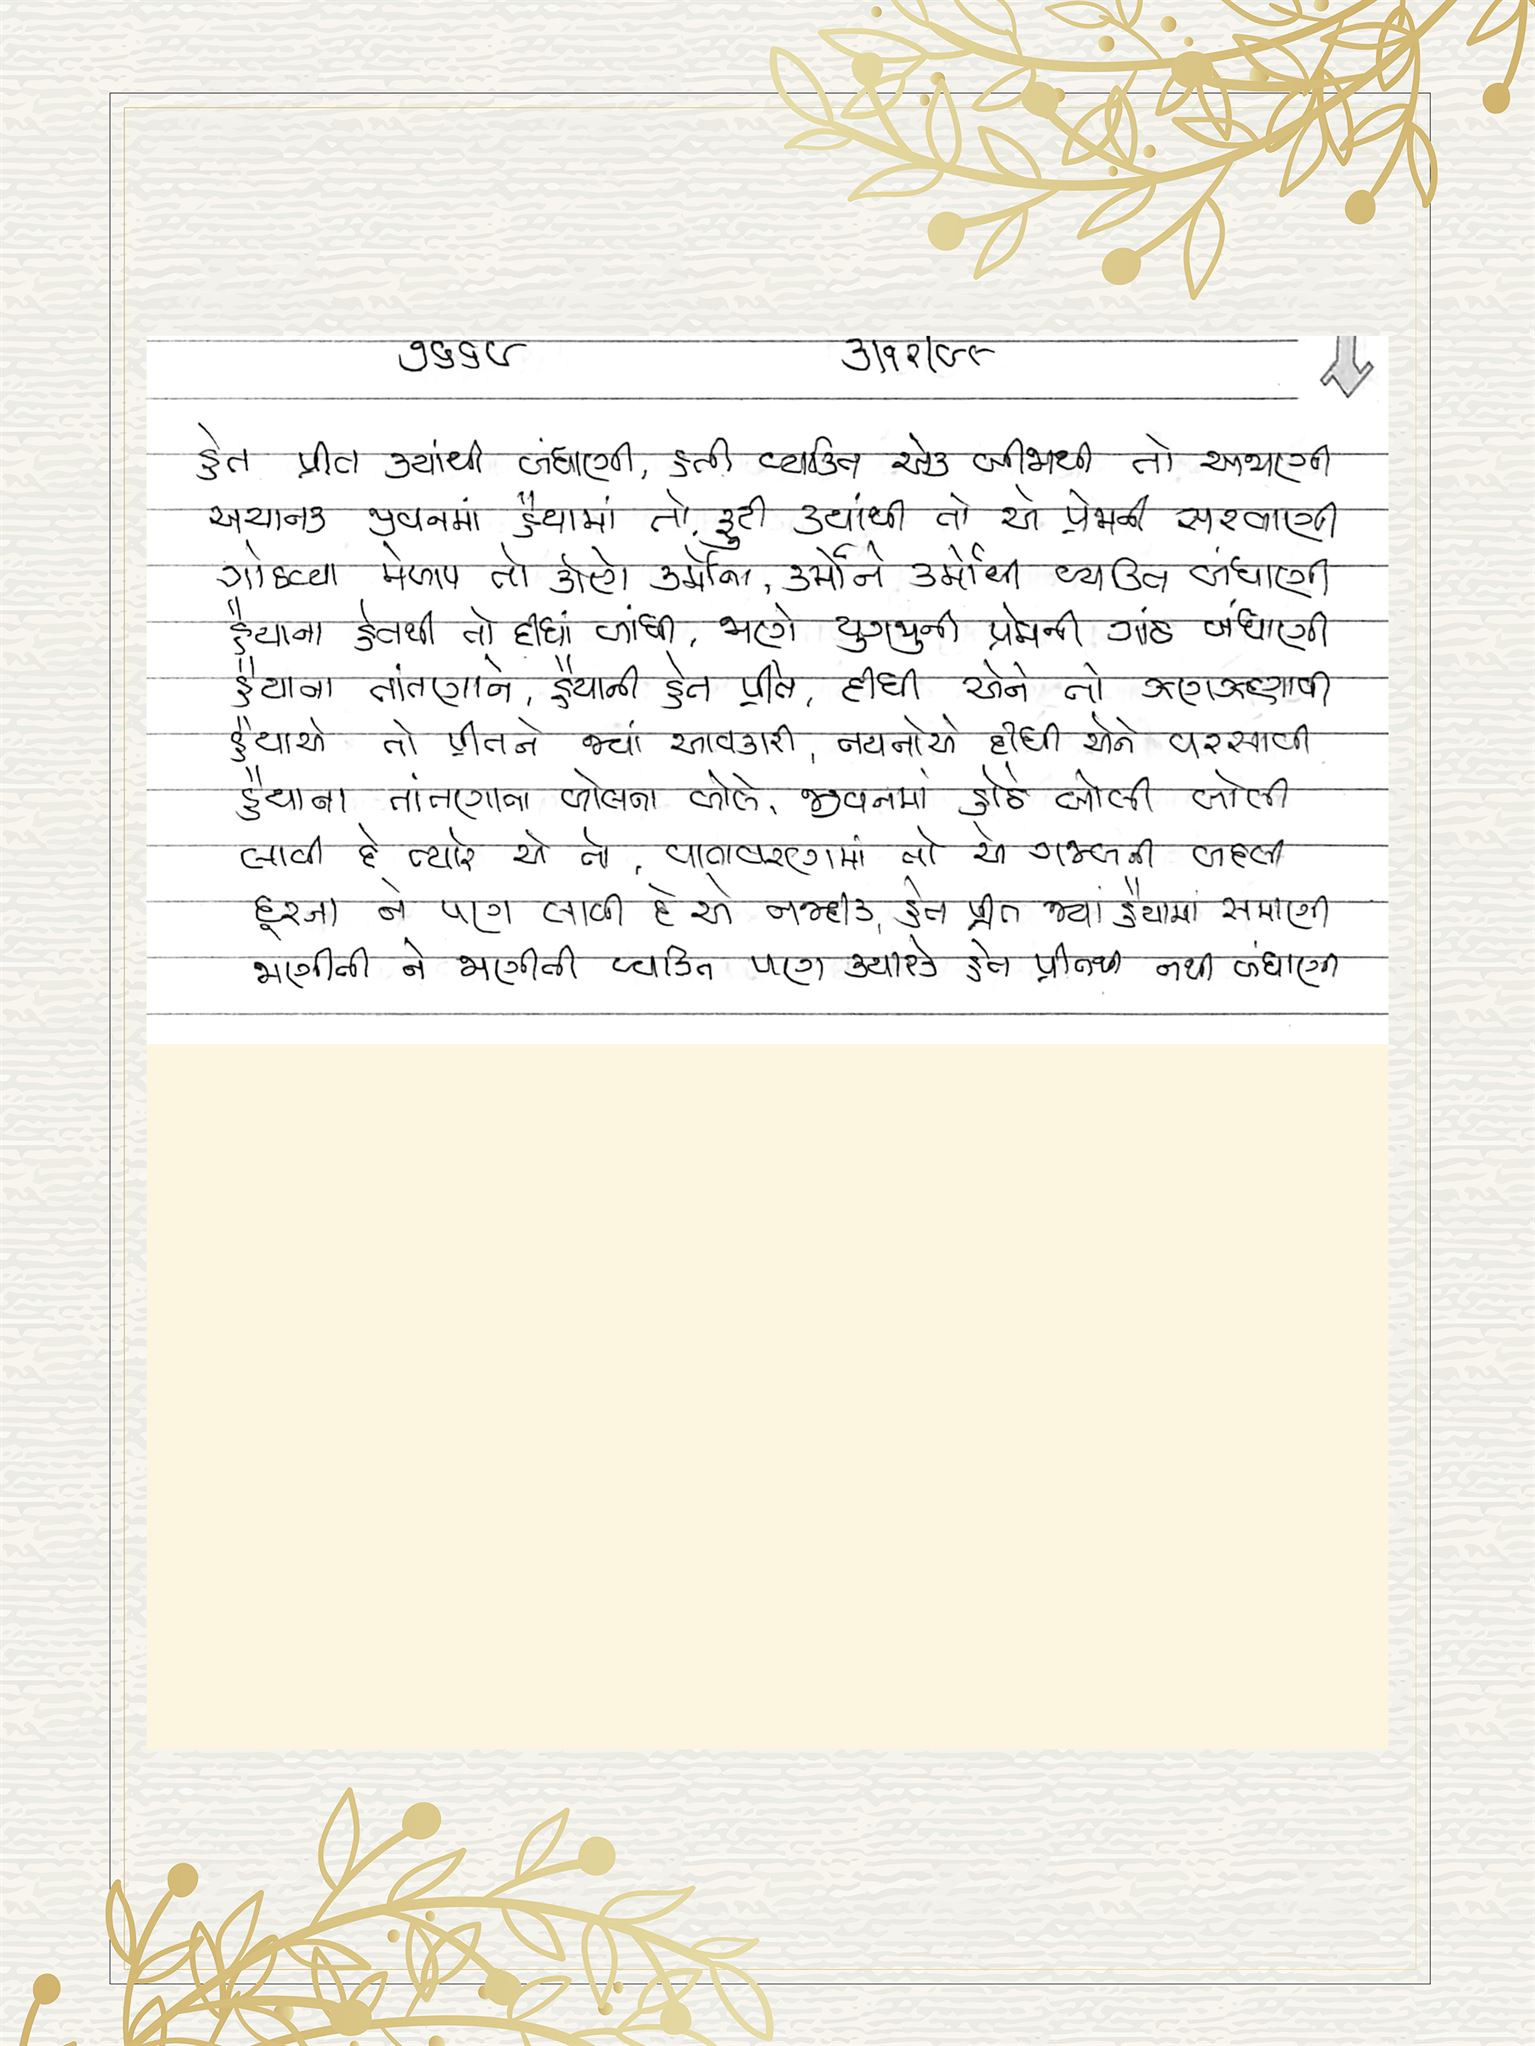 ૭૬૬૮ ૩/૧૨/૯૮
હેત પ્રીત ક્યાંથી બંધાણી, હતી વ્યક્તિ એક બીજાથી તો અજાણી
અચાનક જીવનમાં હૈયામાં તો, ફૂટી ક્યાંથી તો એ પ્રેમની સરવાણી
ગોઠવ્યા મેળાપ તો કોણે કર્મોના, કર્મોને કર્મોથી વ્યક્તિ બંધાણી
હૈયાના હેતથી તો દીધાં બાંધી, જાણે યુગજુની પ્રેમની ગાંઠ બંધાણી
હૈયાના તાંતણાને, હૈયાની હેત પ્રીતે, દીધી એને તો ઝણઝણાવી
હૈયાએ તો પ્રીતને જ્યાં આવકારી, નયનોએ દીધી એને વરસાવી
હૈયાના તાંતણાના બોલના બોલે, જીવનમાં હોઠે બોલી બોલી
લાવી દે ત્યારે એ તો, વાતાવરણમાં તો એ ગજબની બદલી
દૂરતા ને પણ લાવી દે એ નજદીક, હેત પ્રીત જ્યાં હૈયામાં સમાણી
જાણીતી ને જાણીતી વ્યક્તિ પણ ક્યારેક હેત પ્રીતથી નથી બંધાણી